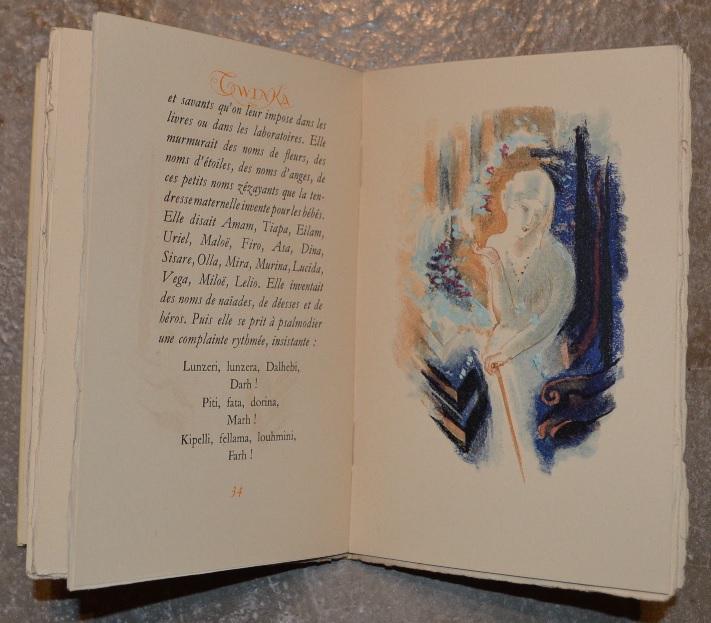 TWINKA
et savants qu'on leur impose dans les
livres ou dans les laboratoires. Elle
murmurait des noms de fleurs, des
noms d'étoiles, des noms d'anges, de
ces petits noms zézayants que la ten-
dresse maternelle invente pour les bébés.
Elle disait Amam, Tiapa, Eilam,
Uriel, Maloë, Firo, Asa, Dina,
Sisare, Olla, Mira, Murina, Lucida,
Vega, Miloë, Lelio. Elle inventait
des noms de naïades, de déesses et de
héros. Puis elle se prit à psalmodier
une complainte rythmée, insistante :
Lunzeri, lunzera, Dalhebi,
Darh !
Piti, fata, dorina,
Marh !
Kipelli, fellama, louhmini,
Farh !
34